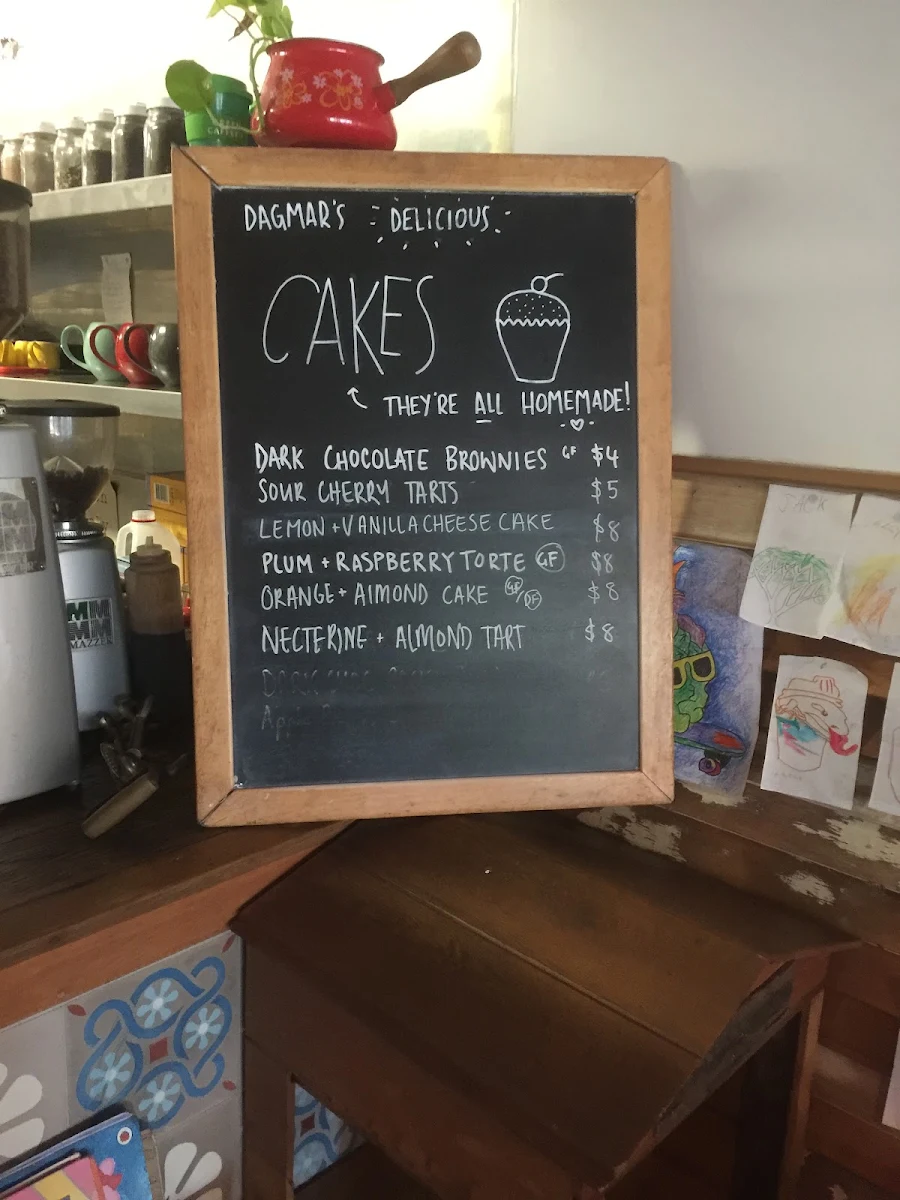 DAGMAR'S DELICIOUS
CAKES
THEY'RE ALL HOMEMADE!
DARK CHOCOLATE BROWNIES GF $4
SOUR CHERRY TARTS $5
LEMON + VANILLA CHEESE CAKE $8
PLUM + RASPBERRY TORTE GF $8
ORANGE + ALMOND CAKE GF/DF $8
NECTERINE + ALMOND TART $8
DARK
JACK
MAZZER